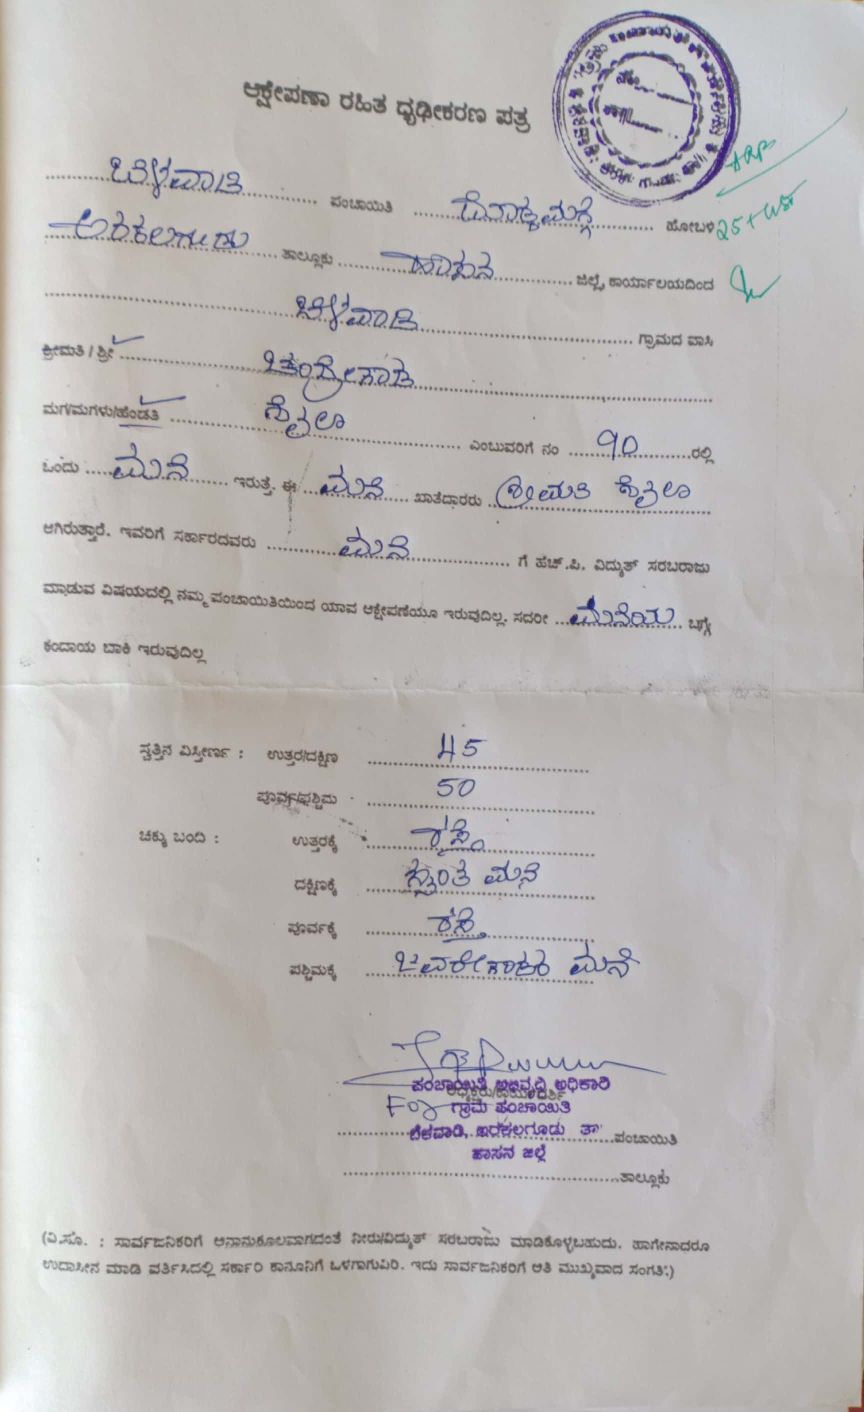 ಆಕ್ಷೇಪಣಾ ರಹಿತ ಧೃಢೀಕರಣ ಪತ್ರ
ಬೆಳವಾಡಿ ಪಂಚಾಯಿತಿ ದೊಡ್ಡಮಗ್ಗೆ ಹೋಬಳಿ
ಅರಕಲಗೂಡು ತಾಲ್ಲೂಕು ಹಾಸನ ಜಿಲ್ಲೆ, ಕಾರ್ಯಾಲಯದಿಂದ
ಬೆಳವಾಡಿ ಗ್ರಾಮದ ವಾಸಿ
ಶ್ರೀಮತಿ / ಶ್ರೀ
ಮಗ/ಮಗಳು/ಹೆಂಡತಿ ಎಂಬುವರಿಗೆ ನಂ 90 ರಲ್ಲಿ
ಒಂದು ಮನೆ ಇರುತ್ತೆ. ಈ ಮನೆ ಖಾತೆದಾರರು ಶ್ರೀಮತಿ
ಆಗಿರುತ್ತಾರೆ. ಇವರಿಗೆ ಸರ್ಕಾರದವರು ಮನೆ ಗೆ ಹೆಚ್.ಪಿ. ವಿದ್ಯುತ್ ಸರಬರಾಜು
ಮಾಡುವ ವಿಷಯದಲ್ಲಿ ನಮ್ಮ ಪಂಚಾಯಿತಿಯಿಂದ ಯಾವ ಆಕ್ಷೇಪಣೆಯೂ ಇರುವುದಿಲ್ಲ. ಸದರೀ ಮನೆಯ ಬಗ್ಗೇ
ಕಂದಾಯ ಬಾಕಿ ಇರುವುದಿಲ್ಲ
ಸ್ವತ್ತಿನ ವಿಸ್ತೀರ್ಣ : ಉತ್ತರ/ದಕ್ಷಿಣ 45
ಪೂರ್ವ/ಪಶ್ಚಿಮ 50
ಚಕ್ಕು ಬಂದಿ : ಉತ್ತರಕ್ಕೆ ರಸ್ತೆ
ದಕ್ಷಿಣಕ್ಕೆ ಮನೆ
ಪೂರ್ವಕ್ಕೆ ರಸ್ತೆ
ಪಶ್ಚಿಮಕ್ಕೆ ಮನೆ
ಪಂಚಾಯಿತಿ ಅಭಿವೃದ್ಧಿ ಅಧಿಕಾರಿ
ಅಧ್ಯಕ್ಷರು/ಕಾರ್ಯದರ್ಶಿ
ಗ್ರಾಮ ಪಂಚಾಯಿತಿ
ಬೆಳವಾಡಿ, ಅರಕಲಗೂಡು ತಾ ಪಂಚಾಯಿತಿ
ಹಾಸನ ಜಿಲ್ಲೆ
ತಾಲ್ಲೂಕು
(ವಿ.ಸೂ. : ಸಾರ್ವಜನಿಕರಿಗೆ ಅನಾನುಕೂಲವಾಗದಂತೆ ನೀರು/ವಿದ್ಯುತ್ ಸರಬರಾಜು ಮಾಡಿಕೊಳ್ಳಬಹುದು. ಹಾಗೇನಾದರೂ
ಉದಾಸೀನ ಮಾಡಿ ವರ್ತಿಸಿದಲ್ಲಿ ಸರ್ಕಾರಿ ಕಾನೂನಿಗೆ ಒಳಗಾಗುವಿರಿ. ಇದು ಸಾರ್ವಜನಿಕರಿಗೆ ಅತಿ ಮುಖ್ಯವಾದ ಸಂಗತಿ.)